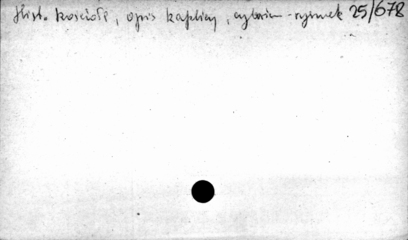 Hist. kościoła, opis kaplicy, cyborium - rysunek 25/678